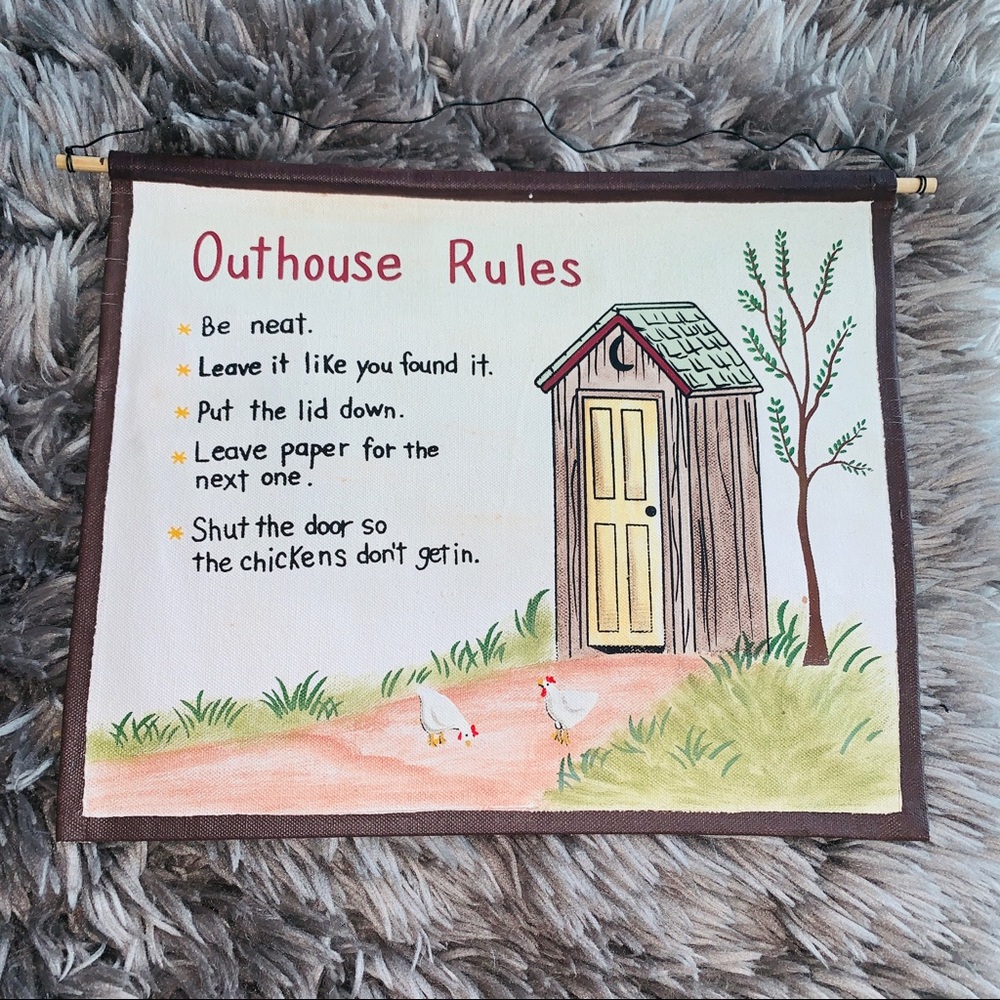 Outhouse Rules
* Be neat.
* Leave it like you found it.
* Put the lid down.
* Leave paper for the
next one.
* Shut the door so
the chickens don't get in.